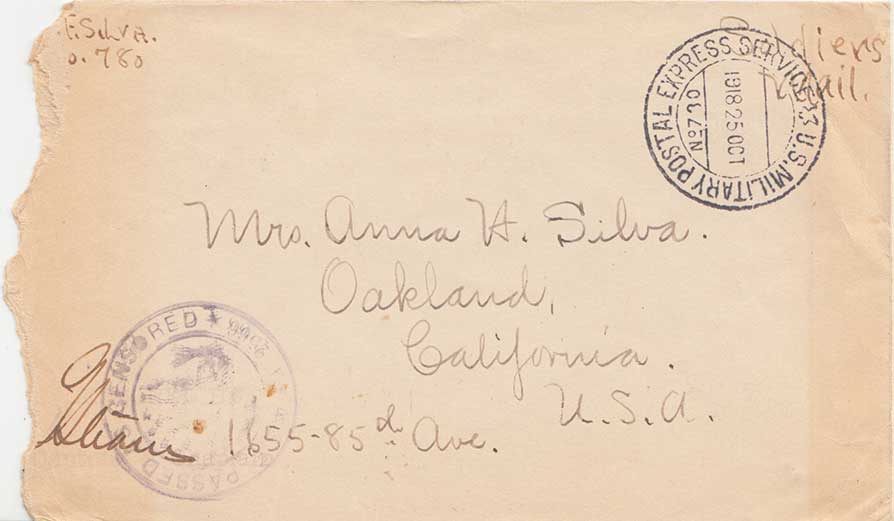 F. Silva.
o. 780
Soldiers
Mail.
U.S. MILITARY POSTAL EXPRESS SERVICE
No 730
1918 25 OCT
Mrs. Anna H. Silva.
Oakland,
California.
U.S.A.
1655-85th Ave.
PASSED
CENSORED